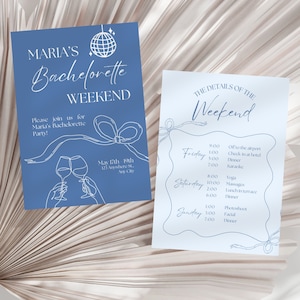 MARIA'S
Bachelorette
WEEKEND
Please join us for
Maria's Bachelorette
Party!
May 17th - 19th
123 Anywhere St.,
Any City
THE DETAILS OF THE
Weekend
Friday
Check in at hotel
Dinner
Karaoke
Saturday
Yoga
Massages
Dinner
Sunday
Photoshoot
Facial
Dinner